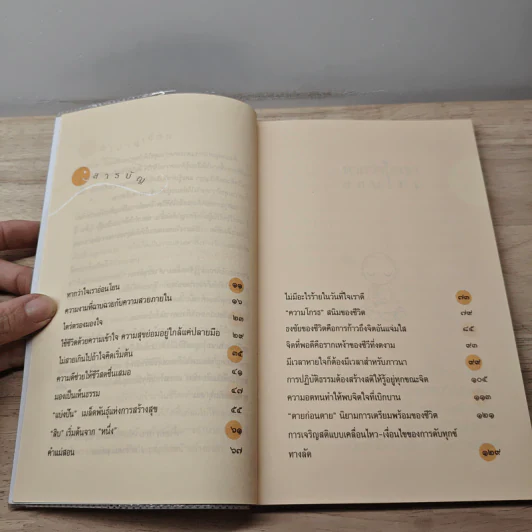 สารบัญ
หากว่าใจเราอ่อนโยน ๑๑
ความงามที่ฉาบฉวยกับความสวยภายใน ๑๖
ไตร่ตรองมองใจ ๒๓
ใช้ชีวิตด้วยความเข้าใจ ความสุขย่อมอยู่ใกล้แค่ปลายมือ ๒๙
ไม่สายเกินไปถ้าใจคิดเริ่มต้น ๓๕
ความดีช่วยให้ชีวิตสดชื่นเสมอ ๔๑
มองเป็นเห็นธรรม ๔๗
"แบ่งปัน" เมล็ดพันธุ์แห่งการสร้างสุข ๕๕
"สิบ" เริ่มต้นจาก "หนึ่ง" ๖๑
คำแม่สอน ๖๗
ไม่มีอะไรร้ายในวันที่ใจเราดี ๗๓
"ความโกรธ" สนิมของชีวิต ๗๙
ธงชัยของชีวิตคือการก้าวถึงจิตอันแจ่มใส ๘๕
จิตที่พอดีคือรากเหง้าของชีวีที่งดงาม ๙๓
มีเวลาหายใจก็ต้องมีเวลาสำหรับภาวนา ๙๙
การปฏิบัติธรรมต้องสร้างสติให้รู้อยู่ทุกขณะจิต ๑๐๕
ความอดทนทำให้พบจิตใจที่เบิกบาน ๑๑๓
"ตายก่อนตาย" นิยามการเตรียมพร้อมของชีวิต ๑๒๑
การเจริญสติแบบเคลื่อนไหว-เงื่อนไขของการดับทุกข์
ทางลัด ๑๒๙